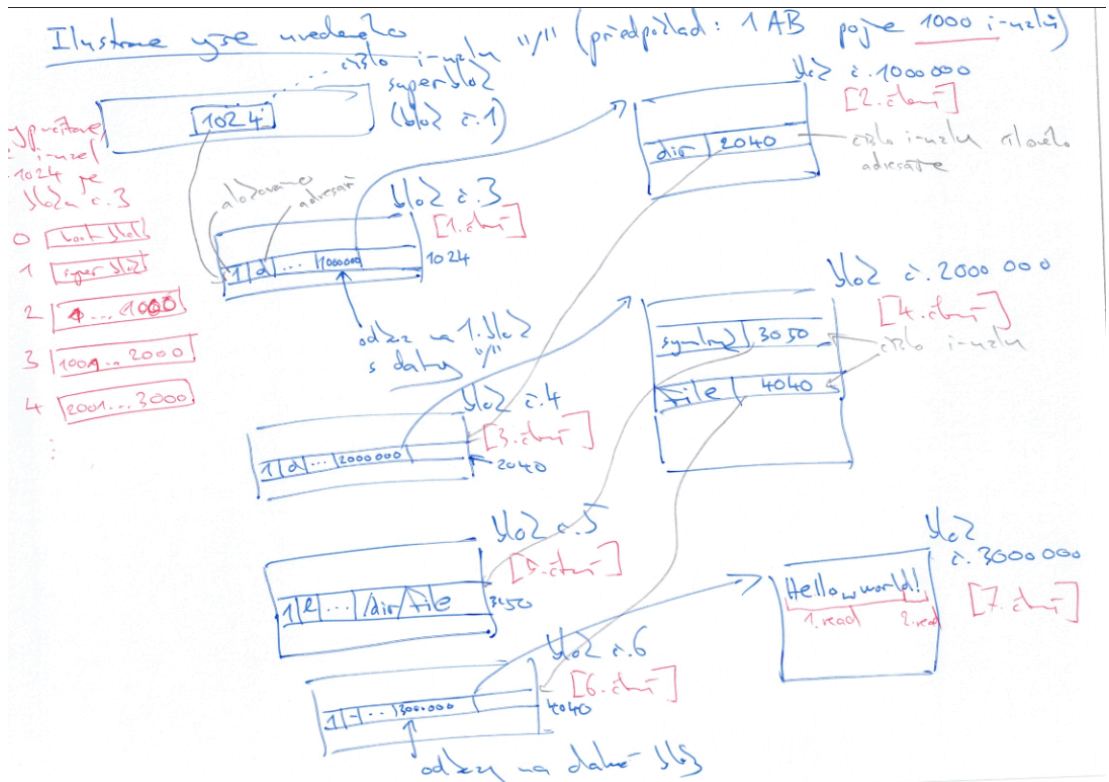 Ilustrace výše uvedeného (předpoklad: 1 AB pojme 1000 i-uzlů)
číslo i-uzlu "/"
superblok
(blok č.1)
1024
i-uzel
1024 je
blok č.3
0 boot blok
1 super blok
2 1...1000
3 1001...2000
4 2001...3000
:
alokováno
adresář
blok č.3
[1. čtení]
1 | d | ... | 1000000
1024
odkaz na 1. blok
s daty "/"
blok č.1000 000
[2. čtení]
dir | 2040
číslo i-uzlu cílového
adresáře
blok č.4
[3. čtení]
1 | d | ... | 2000 000
2040
blok č.2000 000
[4. čtení]
symlink | 3050
file | 4040
číslo i-uzlu
blok č.5
[5. čtení]
1 | l | ... | /dir/file
3050
blok č.6
[6. čtení]
1 | - | ... | 300.000
4040
odkazy na datové bloky
blok
č.3000 000
[7. čtení]
Hello, world!
1. read
2. read